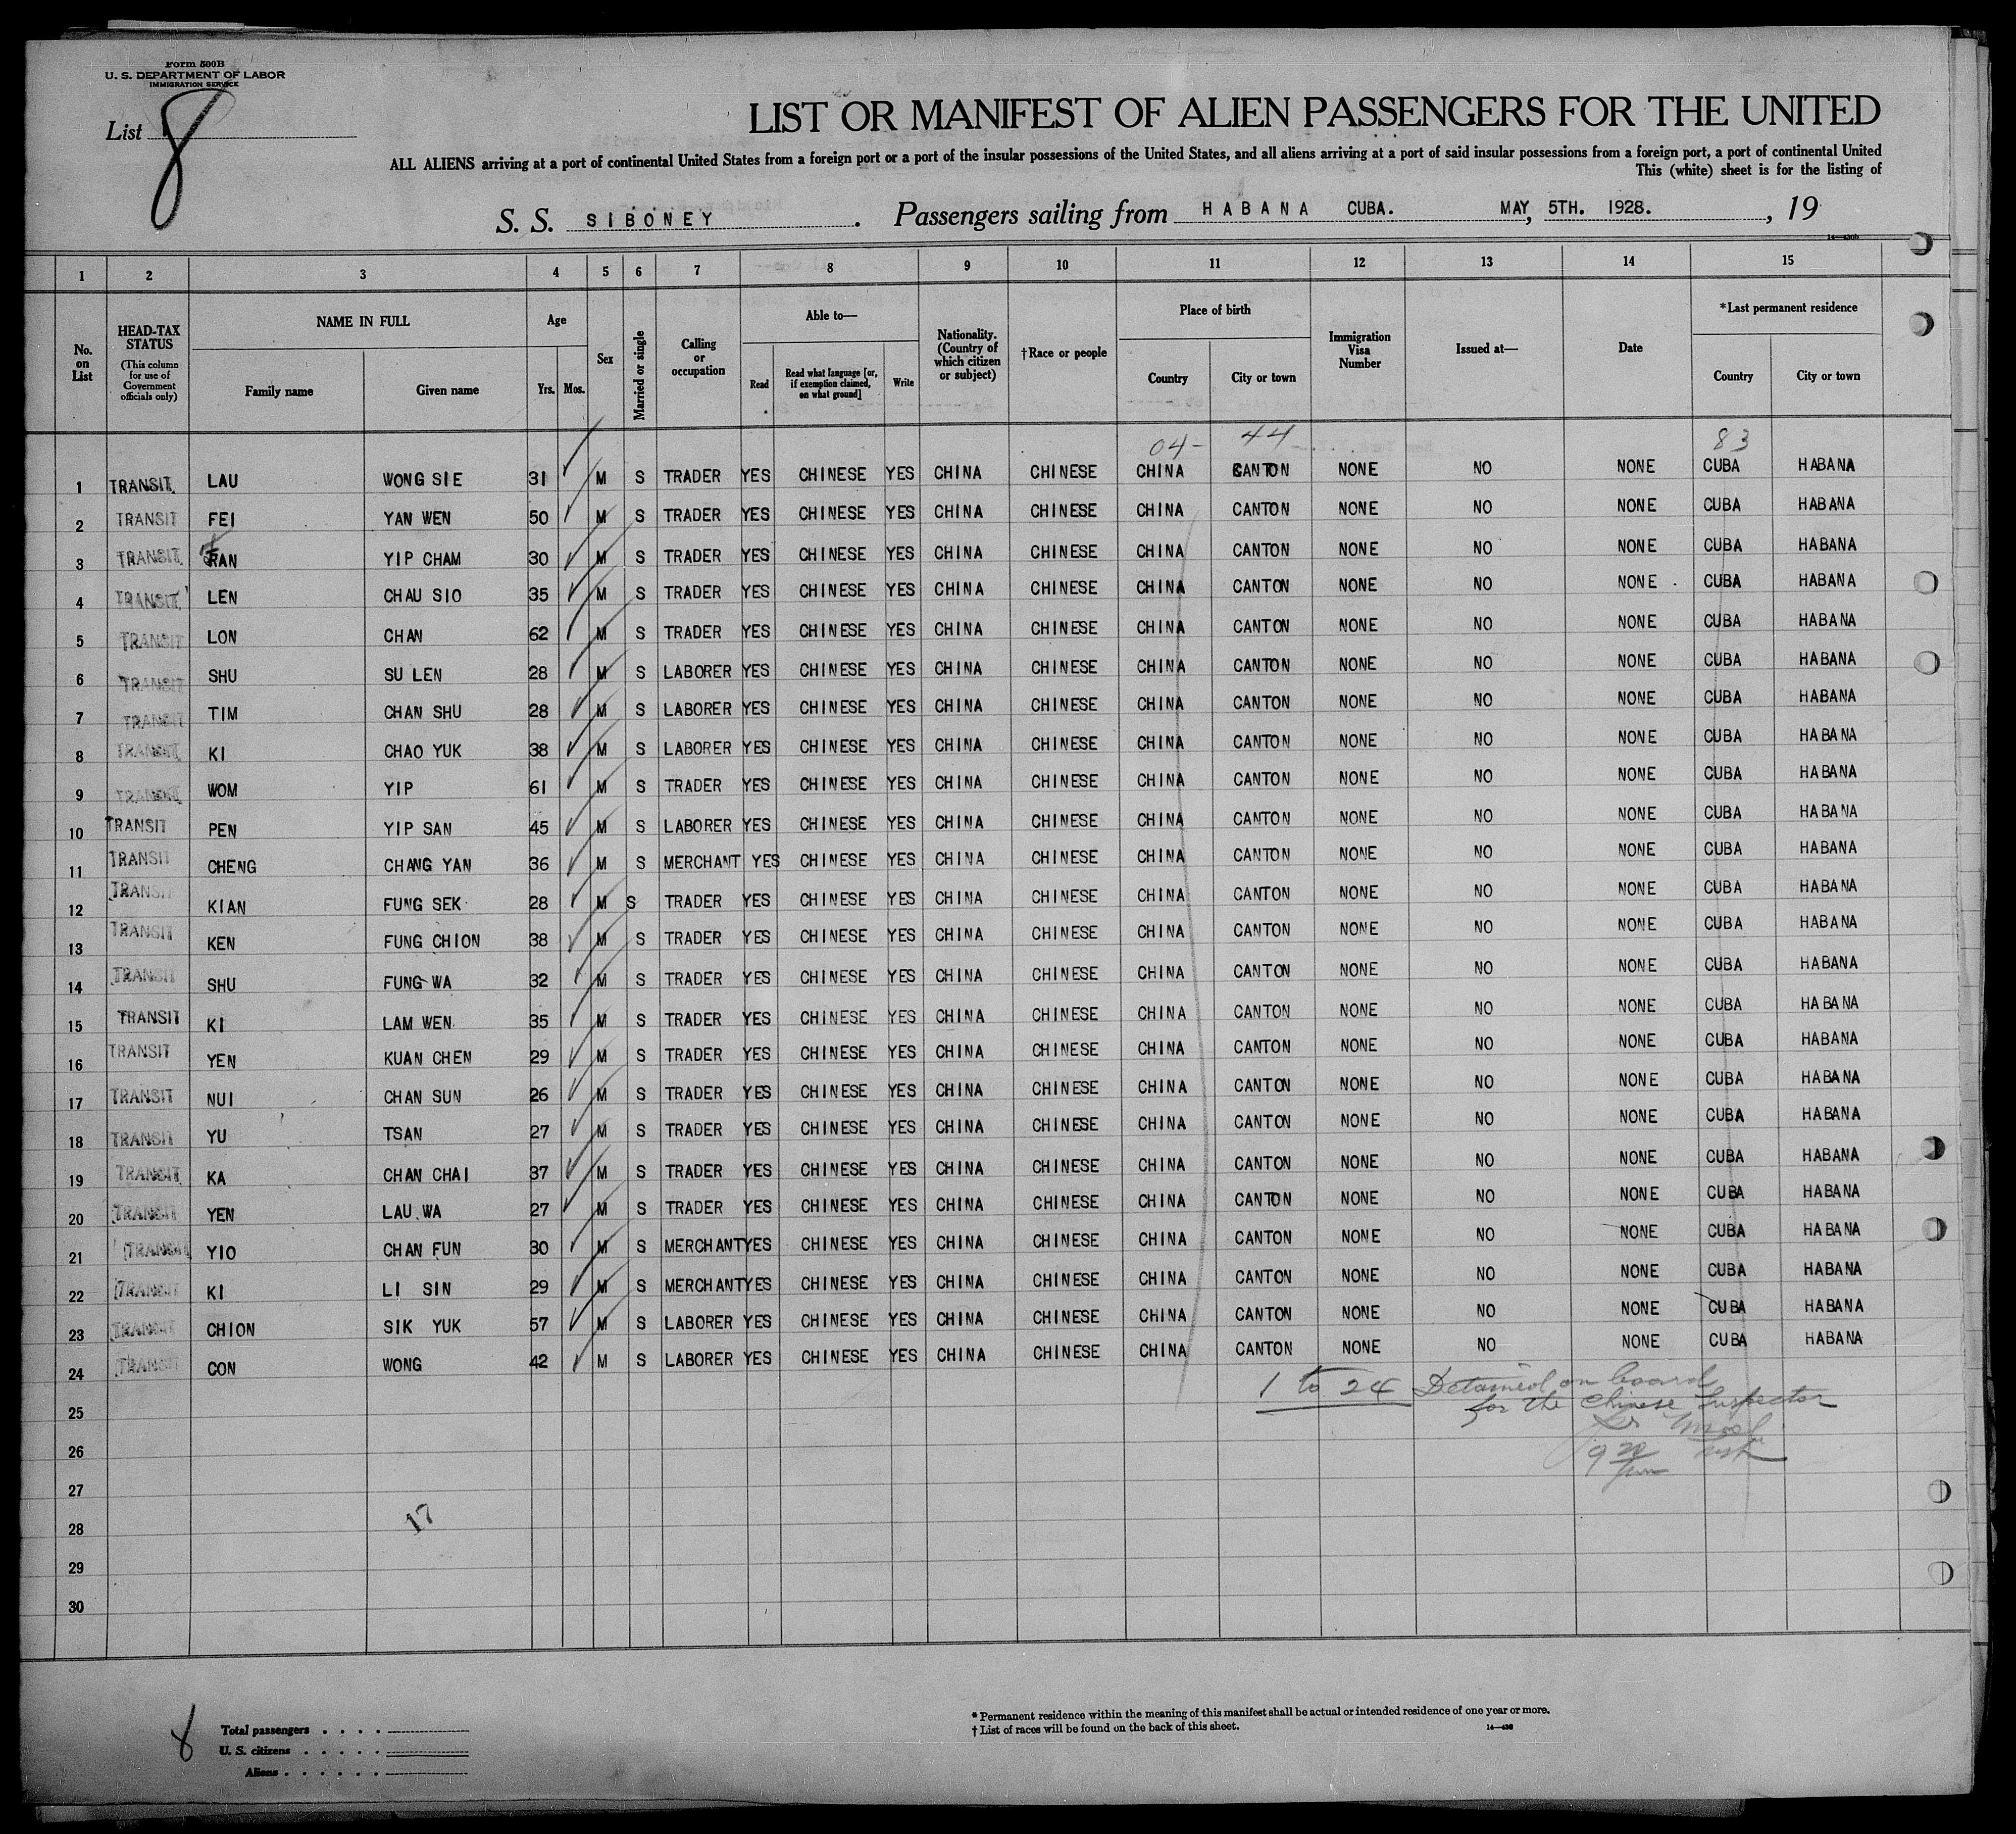 Form 500B
U. S. DEPARTMENT OF LABOR
IMMIGRATION SERVICE
List 8
LIST OR MANIFEST OF ALIEN PASSENGERS FOR THE UNITED
ALL ALIENS arriving at a port of continental United States from a foreign port or a port of the insular possessions of the United States, and all aliens arriving at a port of said insular possessions from a foreign port, a port of continental United
This (white) sheet is for the listing of
S. S. SIBONEY. Passengers sailing from HABANA CUBA. MAY, 5TH. 1928., 19
1 2 3 4 5 6 7 8 9 10 11 12 13 14 15
No. on List
HEAD-TAX STATUS (This column for use of Government officials only)
NAME IN FULL
Family name
Given name
Age
Yrs. Mos.
Sex
Married or single
Calling or occupation
Able to—
Read
Read what language [or, if exemption claimed, on what ground]
Write
Nationality. (Country of which citizen or subject)
†Race or people
Place of birth
Country
City or town
Immigration Visa Number
Issued at—
Date
*Last permanent residence
Country
City or town
04- 44 83
1 TRANSIT LAU WONG SIE 31 M S TRADER YES CHINESE YES CHINA CHINESE CHINA CANTON NONE NO NONE CUBA HABANA
2 TRANSIT FEI YAN WEN 50 M S TRADER YES CHINESE YES CHINA CHINESE CHINA CANTON NONE NO NONE CUBA HABANA
3 TRANSIT YIP CHAM 30 M S TRADER YES CHINESE YES CHINA CHINESE CHINA CANTON NONE NO NONE CUBA HABANA
4 TRANSIT LEN CHAU SIO 35 M S TRADER YES CHINESE YES CHINA CHINESE CHINA CANTON NONE NO NONE CUBA HABANA
5 TRANSIT LON CHAN 62 M S TRADER YES CHINESE YES CHINA CHINESE CHINA CANTON NONE NO NONE CUBA HABANA
6 TRANSIT SHU SU LEN 28 M S LABORER YES CHINESE YES CHINA CHINESE CHINA CANTON NONE NO NONE CUBA HABANA
7 TRANSIT TIM CHAN SHU 28 M S LABORER YES CHINESE YES CHINA CHINESE CHINA CANTON NONE NO NONE CUBA HABANA
8 TRANSIT KI CHAO YUK 38 M S LABORER YES CHINESE YES CHINA CHINESE CHINA CANTON NONE NO NONE CUBA HABANA
9 TRANSIT WOM YIP 61 M S TRADER YES CHINESE YES CHINA CHINESE CHINA CANTON NONE NO NONE CUBA HABANA
10 TRANSIT PEN YIP SAN 45 M S LABORER YES CHINESE YES CHINA CHINESE CHINA CANTON NONE NO NONE CUBA HABANA
11 TRANSIT CHENG CHANG YAN 36 M S MERCHANT YES CHINESE YES CHINA CHINESE CHINA CANTON NONE NO NONE CUBA HABANA
12 TRANSIT KIAN FUNG SEK 28 M S TRADER YES CHINESE YES CHINA CHINESE CHINA CANTON NONE NO NONE CUBA HABANA
13 TRANSIT KEN FUNG CHION 38 M S TRADER YES CHINESE YES CHINA CHINESE CHINA CANTON NONE NO NONE CUBA HABANA
14 TRANSIT SHU FUNG WA 32 M S TRADER YES CHINESE YES CHINA CHINESE CHINA CANTON NONE NO NONE CUBA HABANA
15 TRANSIT KI LAM WEN 35 M S TRADER YES CHINESE YES CHINA CHINESE CHINA CANTON NONE NO NONE CUBA HABANA
16 TRANSIT YEN KUAN CHEN 29 M S TRADER YES CHINESE YES CHINA CHINESE CHINA CANTON NONE NO NONE CUBA HABANA
17 TRANSIT NUI CHAN SUN 26 M S TRADER YES CHINESE YES CHINA CHINESE CHINA CANTON NONE NO NONE CUBA HABANA
18 TRANSIT YU TSAN 27 M S TRADER YES CHINESE YES CHINA CHINESE CHINA CANTON NONE NO NONE CUBA HABANA
19 TRANSIT KA CHAN CHAI 37 M S TRADER YES CHINESE YES CHINA CHINESE CHINA CANTON NONE NO NONE CUBA HABANA
20 TRANSIT YEN LAU WA 27 M S TRADER YES CHINESE YES CHINA CHINESE CHINA CANTON NONE NO NONE CUBA HABANA
21 TRANSIT YIO CHAN FUN 30 M S MERCHANT YES CHINESE YES CHINA CHINESE CHINA CANTON NONE NO NONE CUBA HABANA
22 TRANSIT KI LI SIN 29 M S MERCHANT YES CHINESE YES CHINA CHINESE CHINA CANTON NONE NO NONE CUBA HABANA
23 TRANSIT CHION SIK YUK 57 M S LABORER YES CHINESE YES CHINA CHINESE CHINA CANTON NONE NO NONE CUBA HABANA
24 TRANSIT CON WONG 42 M S LABORER YES CHINESE YES CHINA CHINESE CHINA CANTON NONE NO NONE CUBA HABANA
1 to 24 Detained on board
25 for the Chinese Inspector
26
27
28 17
29
30
8
Total passengers . . . .
U. S. citizens . . . . .
Aliens . . . . . .
* Permanent residence within the meaning of this manifest shall be actual or intended residence of one year or more.
† List of races will be found on the back of this sheet.